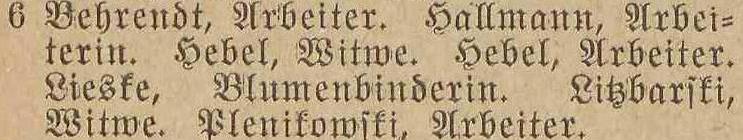 6 Behrendt, Arbeiter. Hallmann, Arbei⸗
terin. Hebel, Witwe. Hebel, Arbeiter.
Lieske, Blumenbinderin. Litzbarſki,
Witwe. Plenikowſki, Arbeiter.